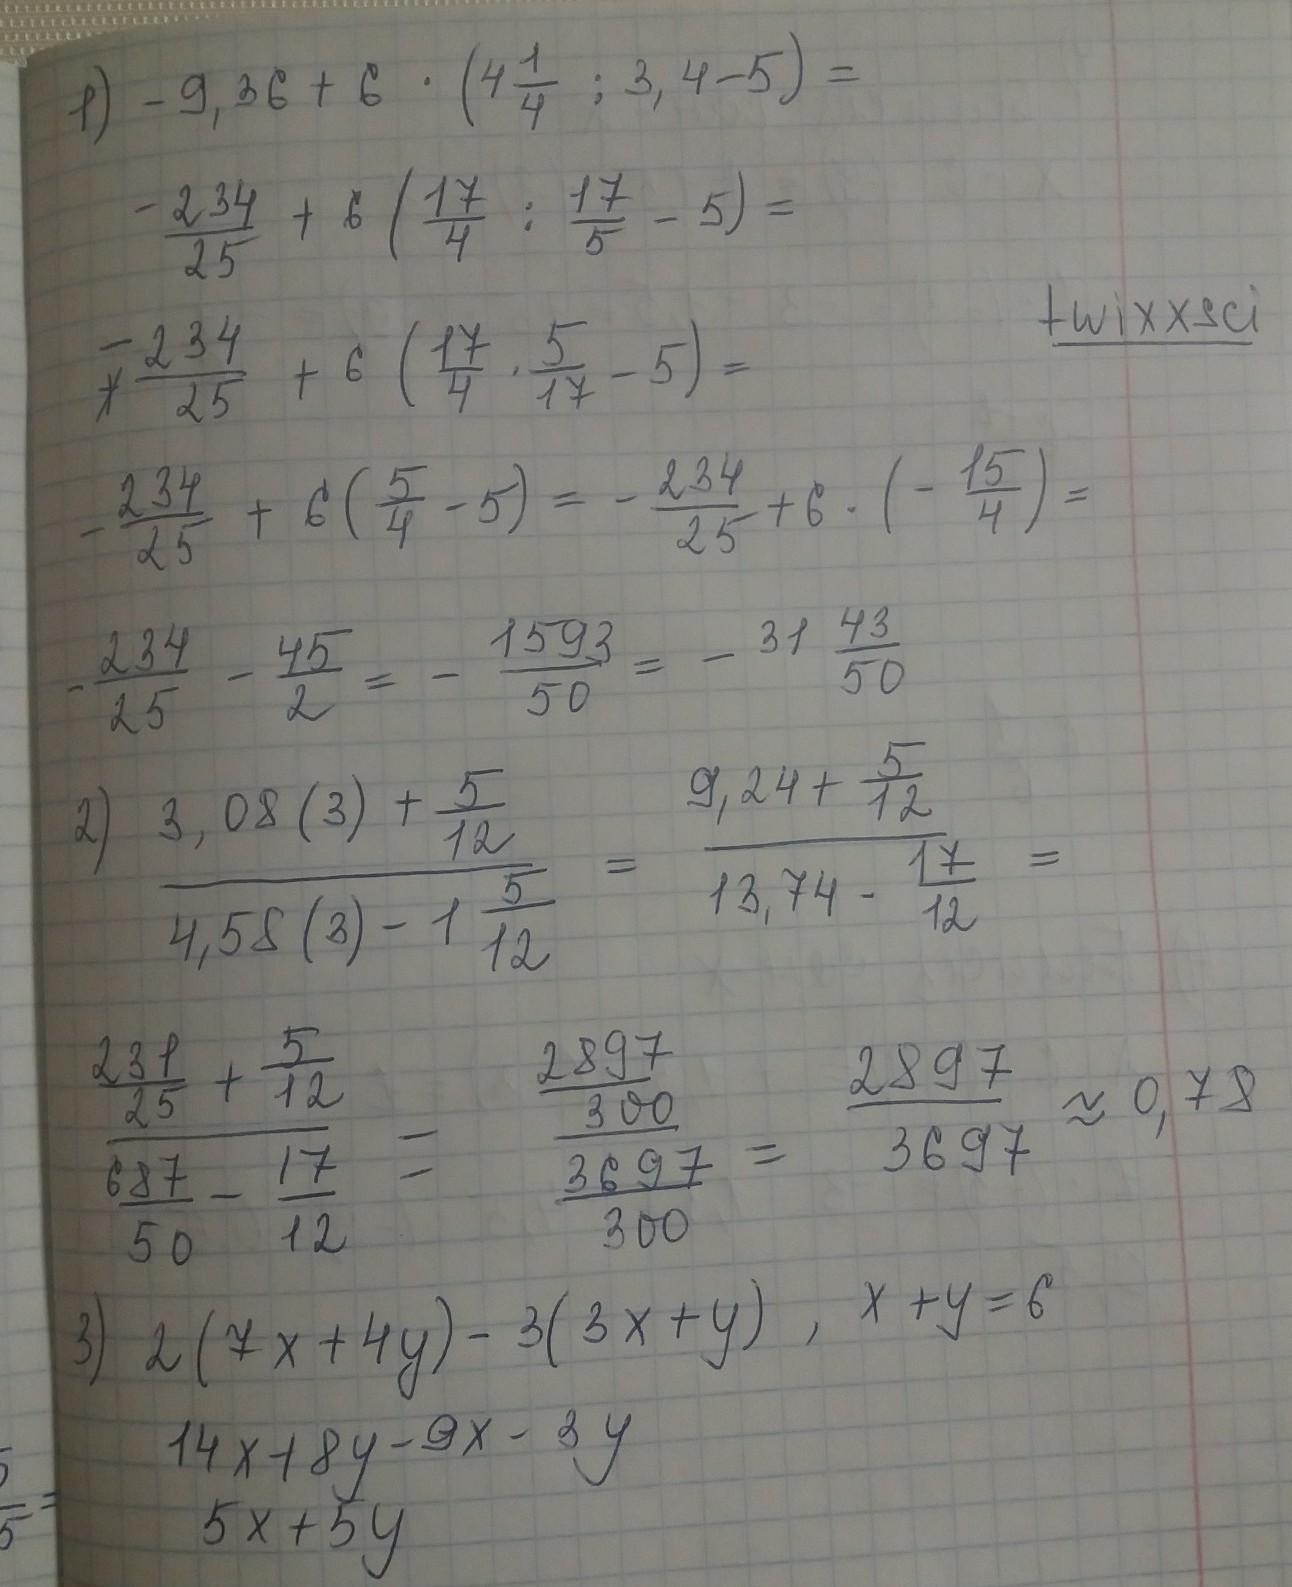 1) -9,36 + 6 · (4 1/4 : 3,4 - 5) =
-234/25 + 6 (17/4 : 17/5 - 5) =
-234/25 + 6 (17/4 · 5/17 - 5) =
twixxsci
-234/25 + 6 (5/4 - 5) = -234/25 + 6 · (-15/4) =
-234/25 - 45/2 = -1593/50 = -31 43/50
2) (3,08(3) + 5/12)/(4,58(3) - 1 5/12) = (9,24 + 5/12)/(13,74 - 17/12) =
(231/25 + 5/12)/(687/50 - 17/12) = (2897/300)/(3697/300) = 2897/3697 ≈ 0,78
3) 2(7x+4y) - 3(3x+y), x+y=6
14x+8y-9x-3y
5x+5y